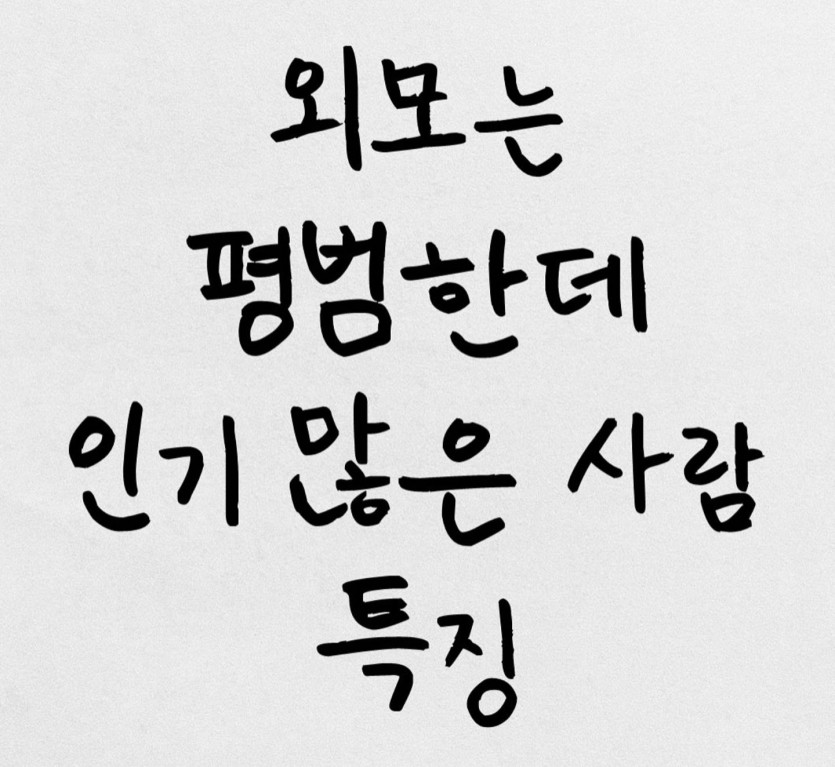 외모는
평범한데
인기 많은 사람
특징